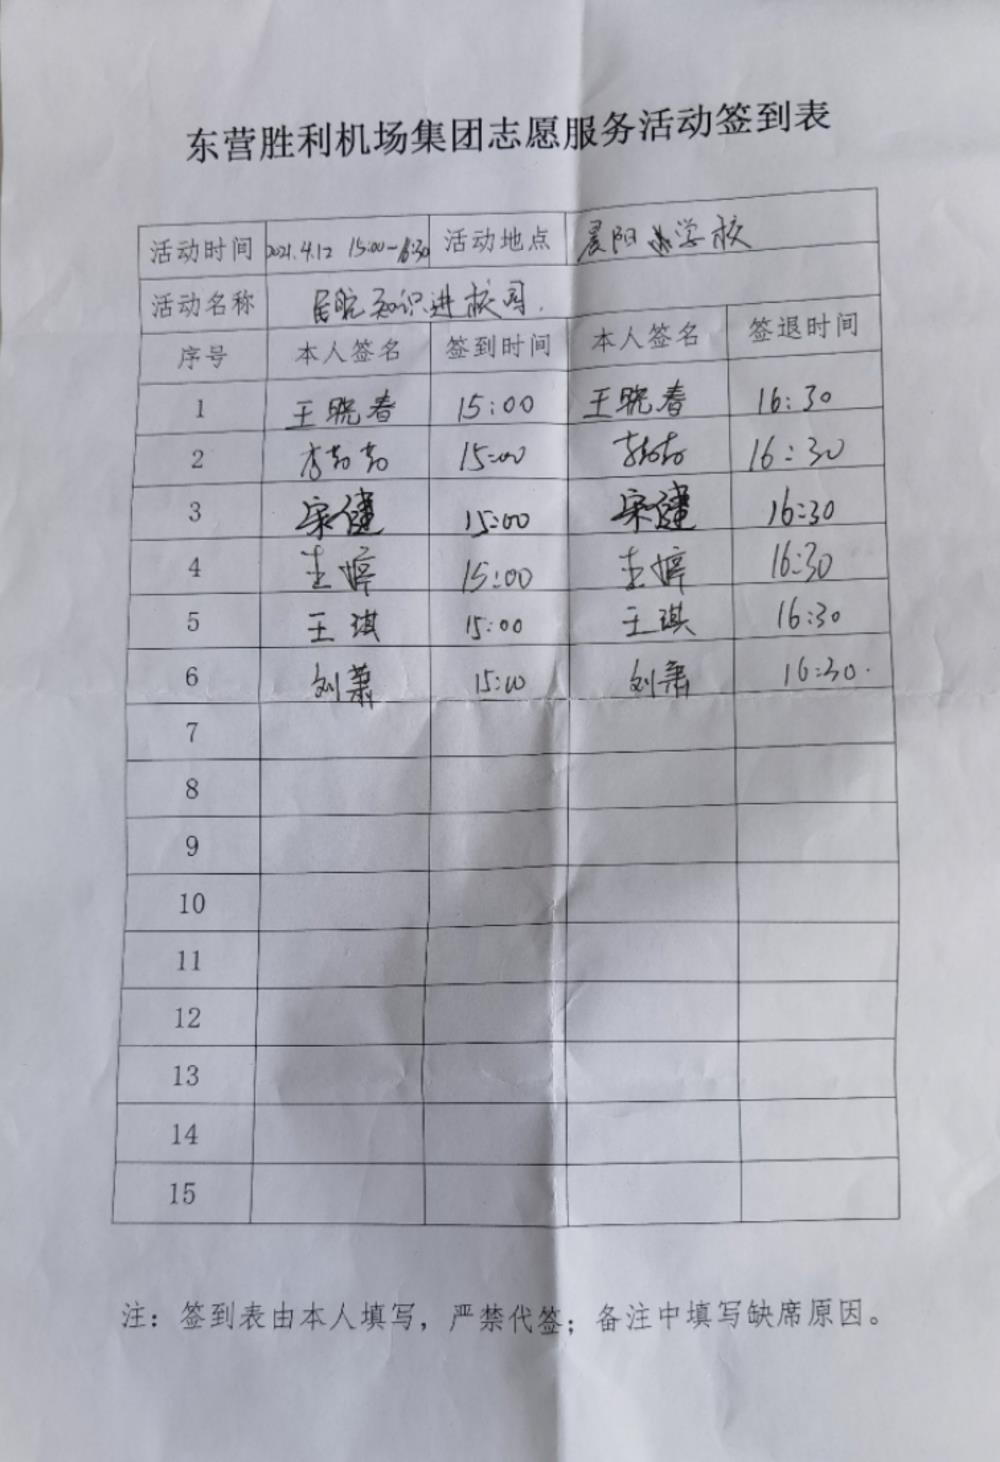 东营胜利机场集团志愿服务活动签到表
活动时间 2021.4.12 15:00-16:30 活动地点 晨阳学校
活动名称 民航知识进校园.
序号 本人签名 签到时间 本人签名 签退时间
1 王晓春 15:00 王晓春 16:30
2 15:00 16:30
3 宋健 15:00 宋健 16:30
4 婷 15:00 婷 16:30
5 王琪 15:00 王琪 16:30
6 刘萧 15:00 刘萧 16:30.
7
8
9
10
11
12
13
14
15
注：签到表由本人填写，严禁代签；备注中填写缺席原因。